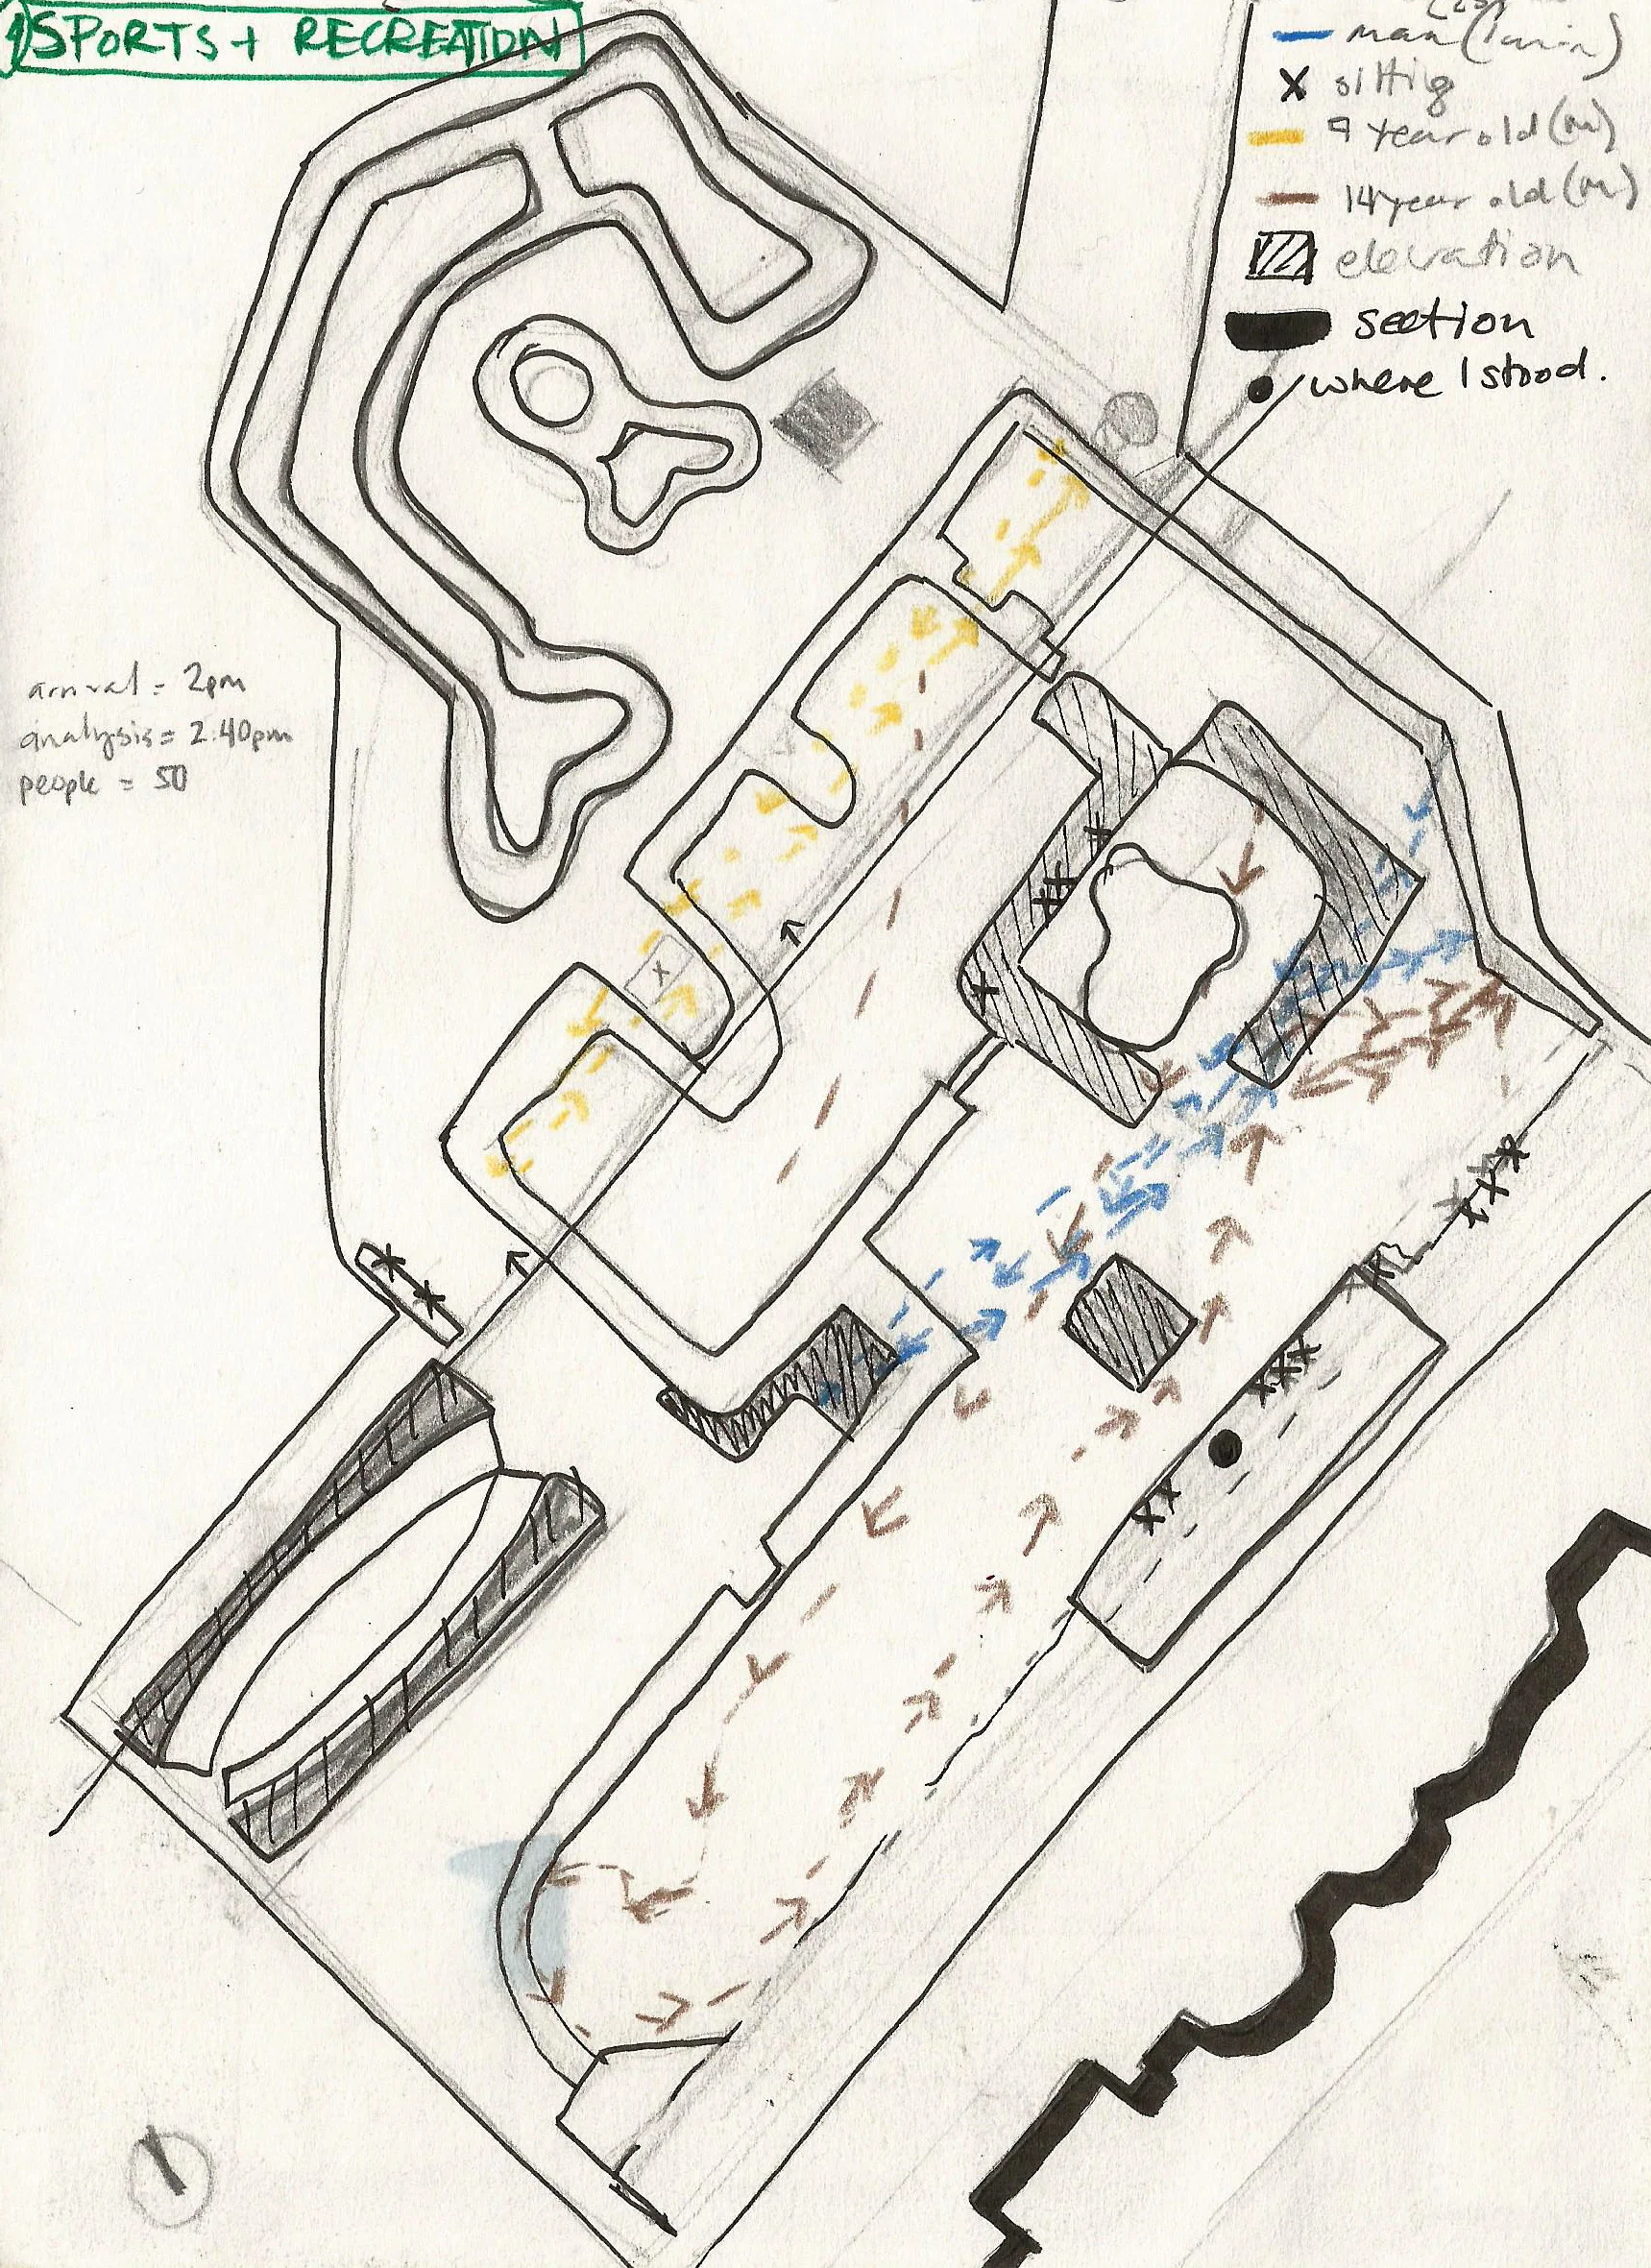 SPORTS + RECREATION
man (1 min)
X sitting
9 year old (m)
14 year old (m)
elevation
section
where I stood.
arrival = 2pm
analysis = 2.40pm
people = 50